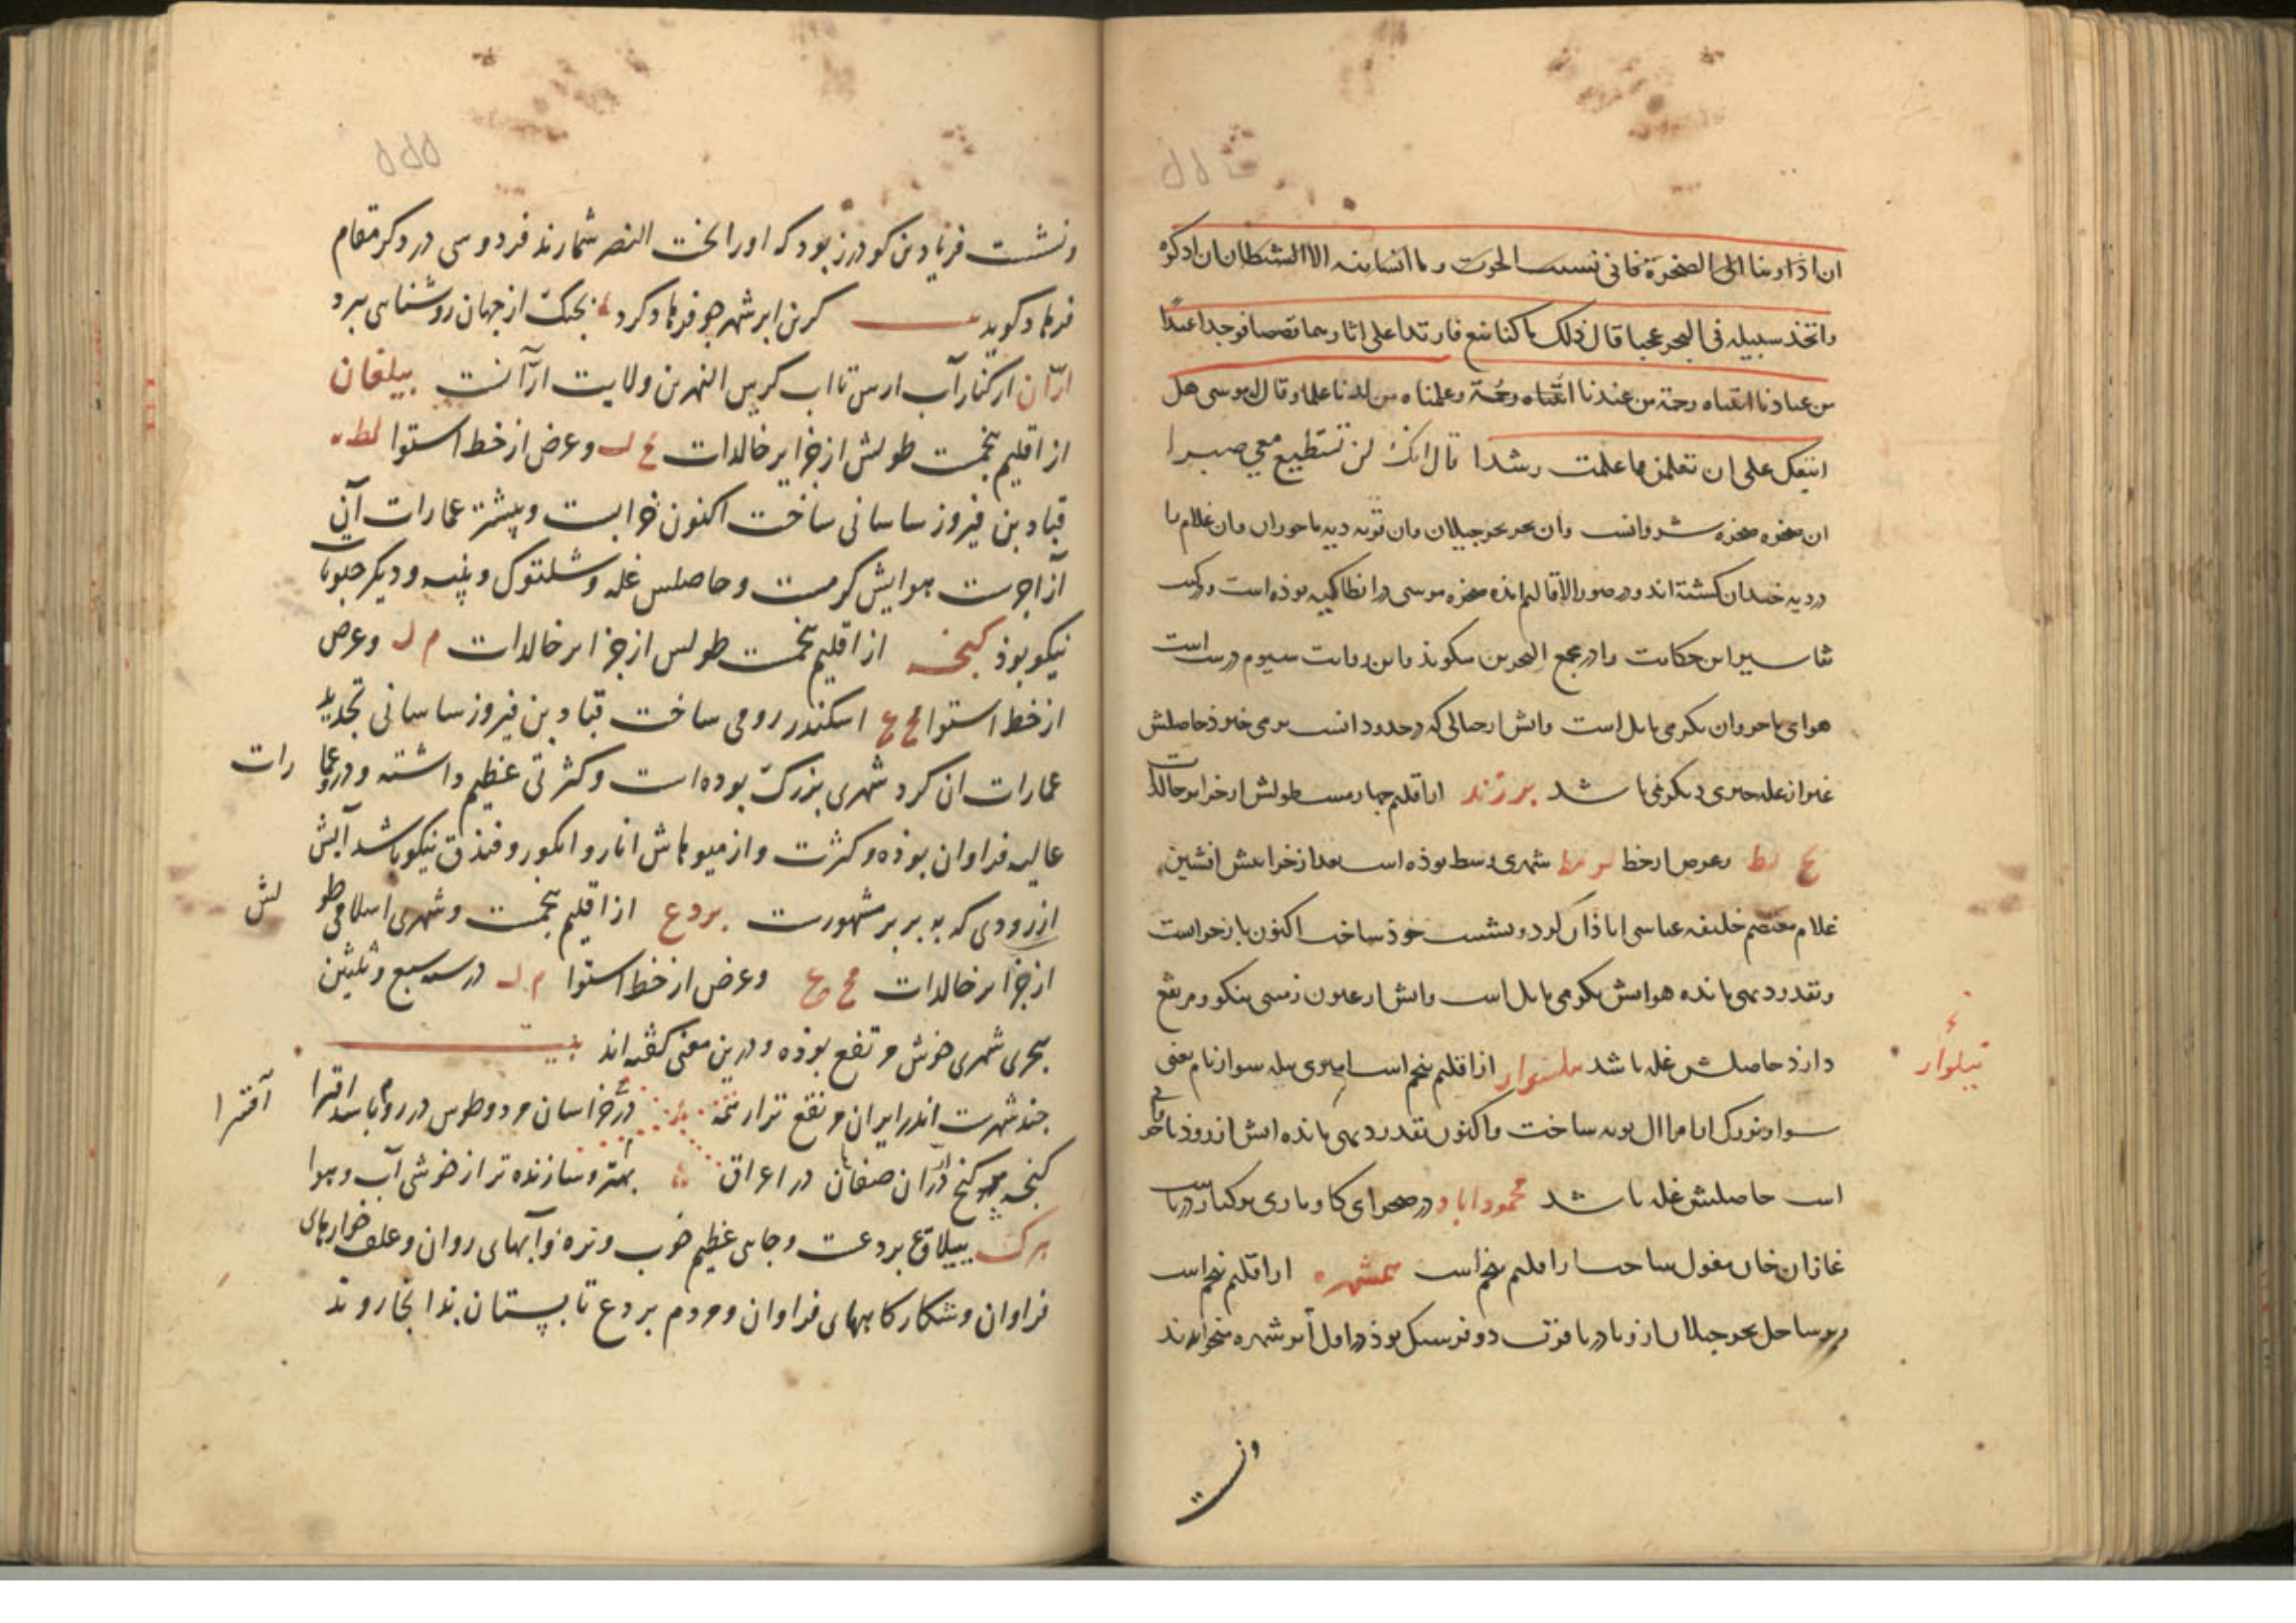 ان اذ اوینا الی الصخرة فانی نسیت الحوت و ما انسانیه الا الشیطان ان اذکره
واتخذ سبیله فی البحر عجبا قال ذلک ما کنا نبغ فارتدا علی اثارهما قصصا فوجدا عبدا
من عبادنا اتیناه رحمة من عندنا اتیناه رحمة وعلمناه من لدنا علما و قال له موسی هل
اتبعک علی ان تعلمن مما علمت رشدا قال انک لن تستطیع معی صبرا
ان صخره صخره شروانست وان بحر بحر جیلان وان قریه دیه باجروان وان غلام را
در دیه خیزان کشته اند و در صور الاقالیم امده صخره موسی در انطاکیه بوذه است و در کتب
تفاسیر این حکایت را در مجمع البحرین میکویند و این روایت سیوم درست است
هوای باجروان بکرمی مایل است وابش از جبالی که در حدود انست برمی خیزد حاصلش
غیر از غله چیزی دیکر نمی باشد برزند از اقلیم چهارمست طولش از جزایر خالدات
عج لط وعرض از خط لو مط شهری وسط بوذه است بعد از خرابیش افشین
غلام معتصم خلیفه عباسی اباذان کرد و نشست خوذ ساخت اکنون باز خراب است
و بقدر دیهی مانده هوایش بکرمی مایل است وابش از عیون زمینی نیکو و مرتفع
دارذ حاصلش غله باشد پیلسوار از اقلیم پنجم است امیری پیله سوار نام یعنی
پیلوار
سوار بزرک از امرا ال بویه ساخت و اکنون بقدر دیهی مانده ابش از روذ باجروان
است حاصلش غله باشد محموداباد در صحرای کاوباری بر کنار دریاست
غازان خان مغول ساخت از اقلیم پنجم است همشهره از اقلیم پنجم است
و بر ساحل بحر جیلان از و تا دریا قرب دو فرسنک بوذ در اول ابر شهره میخواندند
ونشست
۵۵۵
ونشست فرهاد بن کودرز بود که او را بخت النصر شمارند فردوسی در ذکر مقام
فرهاد کوید کزین ابر شهر چو فرهاد کرد بجنک از جهان روشنایی ببرد
ارّان از کنار آب ارس تا اب کر بین النهرین ولایت ارّآنست بیلقان
از اقلیم پنجمست طولش از جزایر خالدات عج ل وعرض از خط استوا لط
قباد بن فیروز ساسانی ساخت اکنون خرابست و بیشتر عمارات آن
از آجرست هوایش کرمست و حاصلش غله و شلتوک و پنبه و دیکر حبوبات
نیکو بوذ کنجه از اقلیم پنجمست طولش از جزایر خالدات م ل وعرض
از خط استوا مح ع اسکندر رومی ساخت قباد بن فیروز ساسانی تجدید
عمارات ان کرد شهری بزرک بوده است و کثرتی عظیم داشته و درو عمارات
عالیه فراوان بوذه و کثرت و از میوهاش انار و انکور و فندق نیکو باشد آبش
از رودی که به بربر مشهورست بردع از اقلیم پنجمست و شهری اسلامی طولش
از جزایر خالدات مح ع وعرض از خط استوا م ل در سنه سبع و ثلثین
هجری شهری خوش و مرتفع بوذه و درین معنی کفته اند بیت
چند شهرست اندر ایران مرتفع تر از همه در خراسان مرو و طوس در روم باشد اقسرا
کنجه پر کنج در ارّان صفاهان در عراق بهتر و سازنده تر از خوشی آب و هوا
اقسرا
برک ییلاق بردعست و جایی عظیم خوب و نزه و آبهای روان و علف خوارهای
فراوان و شکارکاههای فراوان و مردم بردع تابستان بدانجا روند